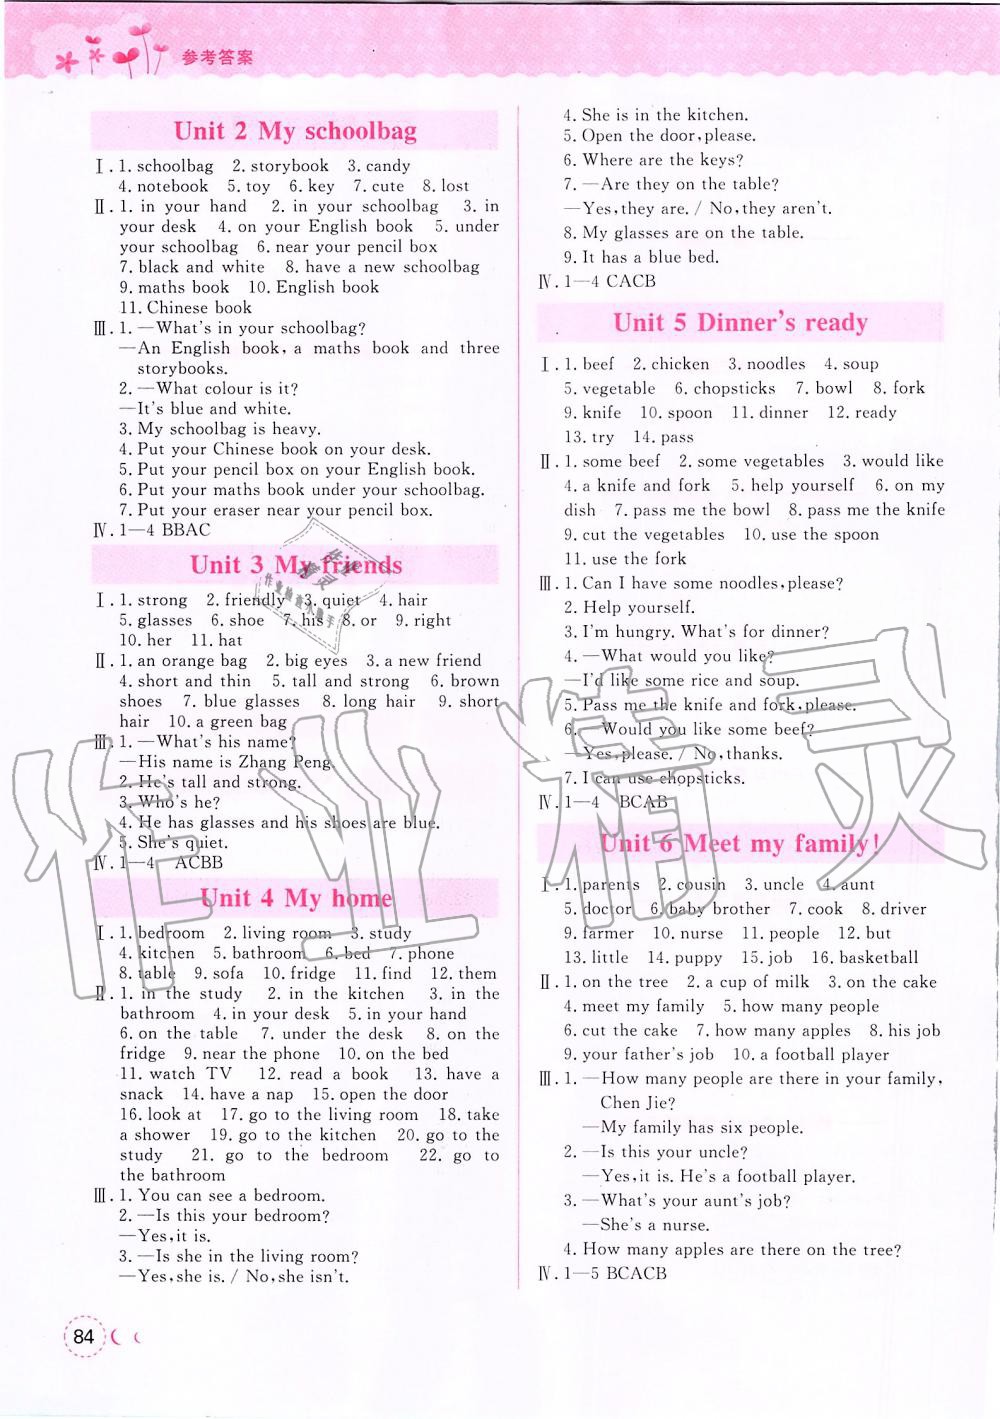 参考答案
Unit 2 My schoolbag
Ⅰ. 1. schoolbag 2. storybook 3. candy
4. notebook 5. toy 6. key 7. cute 8. lost
Ⅱ. 1. in your hand 2. in your schoolbag 3. in
your desk 4. on your English book 5. under
your schoolbag 6. near your pencil box
7. black and white 8. have a new schoolbag
9. maths book 10. English book
11. Chinese book
Ⅲ. 1. —What's in your schoolbag?
—An English book, a maths book and three
storybooks.
2. —What colour is it?
—It's blue and white.
3. My schoolbag is heavy.
4. Put your Chinese book on your desk.
5. Put your pencil box on your English book.
6. Put your maths book under your schoolbag.
7. Put your eraser near your pencil box.
Ⅳ. 1—4 BBAC
Unit 3 My friends
Ⅰ. 1. strong 2. friendly 3. quiet 4. hair
5. glasses 6. shoe 7. his 8. or 9. right
10. her 11. hat
Ⅱ. 1. an orange bag 2. big eyes 3. a new friend
4. short and thin 5. tall and strong 6. brown
shoes 7. blue glasses 8. long hair 9. short
hair 10. a green bag
Ⅲ. 1. —What's his name?
—His name is Zhang Peng.
2. He's tall and strong.
3. Who's he?
4. He has glasses and his shoes are blue.
5. She's quiet.
Ⅳ. 1—4 ACBB
Unit 4 My home
Ⅰ. 1. bedroom 2. living room 3. study
4. kitchen 5. bathroom 6. bed 7. phone
8. table 9. sofa 10. fridge 11. find 12. them
Ⅱ. 1. in the study 2. in the kitchen 3. in the
bathroom 4. in your desk 5. in your hand
6. on the table 7. under the desk 8. on the
fridge 9. near the phone 10. on the bed
11. watch TV 12. read a book 13. have a
snack 14. have a nap 15. open the door
16. look at 17. go to the living room 18. take
a shower 19. go to the kitchen 20. go to the
study 21. go to the bedroom 22. go to
the bathroom
Ⅲ. 1. You can see a bedroom.
2. —Is this your bedroom?
—Yes, it is.
3. —Is she in the living room?
—Yes, she is. / No, she isn't.
4. She is in the kitchen.
5. Open the door, please.
6. Where are the keys?
7. —Are they on the table?
—Yes, they are. / No, they aren't.
8. My glasses are on the table.
9. It has a blue bed.
Ⅳ. 1—4 CACB
Unit 5 Dinner's ready
Ⅰ. 1. beef 2. chicken 3. noodles 4. soup
5. vegetable 6. chopsticks 7. bowl 8. fork
9. knife 10. spoon 11. dinner 12. ready
13. try 14. pass
Ⅱ. 1. some beef 2. some vegetables 3. would like
4. a knife and fork 5. help yourself 6. on my
dish 7. pass me the bowl 8. pass me the knife
9. cut the vegetables 10. use the spoon
11. use the fork
Ⅲ. 1. Can I have some noodles, please?
2. Help yourself.
3. I'm hungry. What's for dinner?
4. —What would you like?
—I'd like some rice and soup.
5. Pass me the knife and fork, please.
6. —Would you like some beef?
—Yes, please. / No, thanks.
7. I can use chopsticks.
Ⅳ. 1—4 BCAB
Unit 6 Meet my family!
Ⅰ. 1. parents 2. cousin 3. uncle 4. aunt
5. doctor 6. baby brother 7. cook 8. driver
9. farmer 10. nurse 11. people 12. but
13. little 14. puppy 15. job 16. basketball
Ⅱ. 1. on the tree 2. a cup of milk 3. on the cake
4. meet my family 5. how many people
6. cut the cake 7. how many apples 8. his job
9. your father's job 10. a football player
Ⅲ. 1. —How many people are there in your family,
Chen Jie?
—My family has six people.
2. —Is this your uncle?
—Yes, it is. He's a football player.
3. —What's your aunt's job?
—She's a nurse.
4. How many apples are there on the tree?
Ⅳ. 1—5 BCACB
84
作业精灵